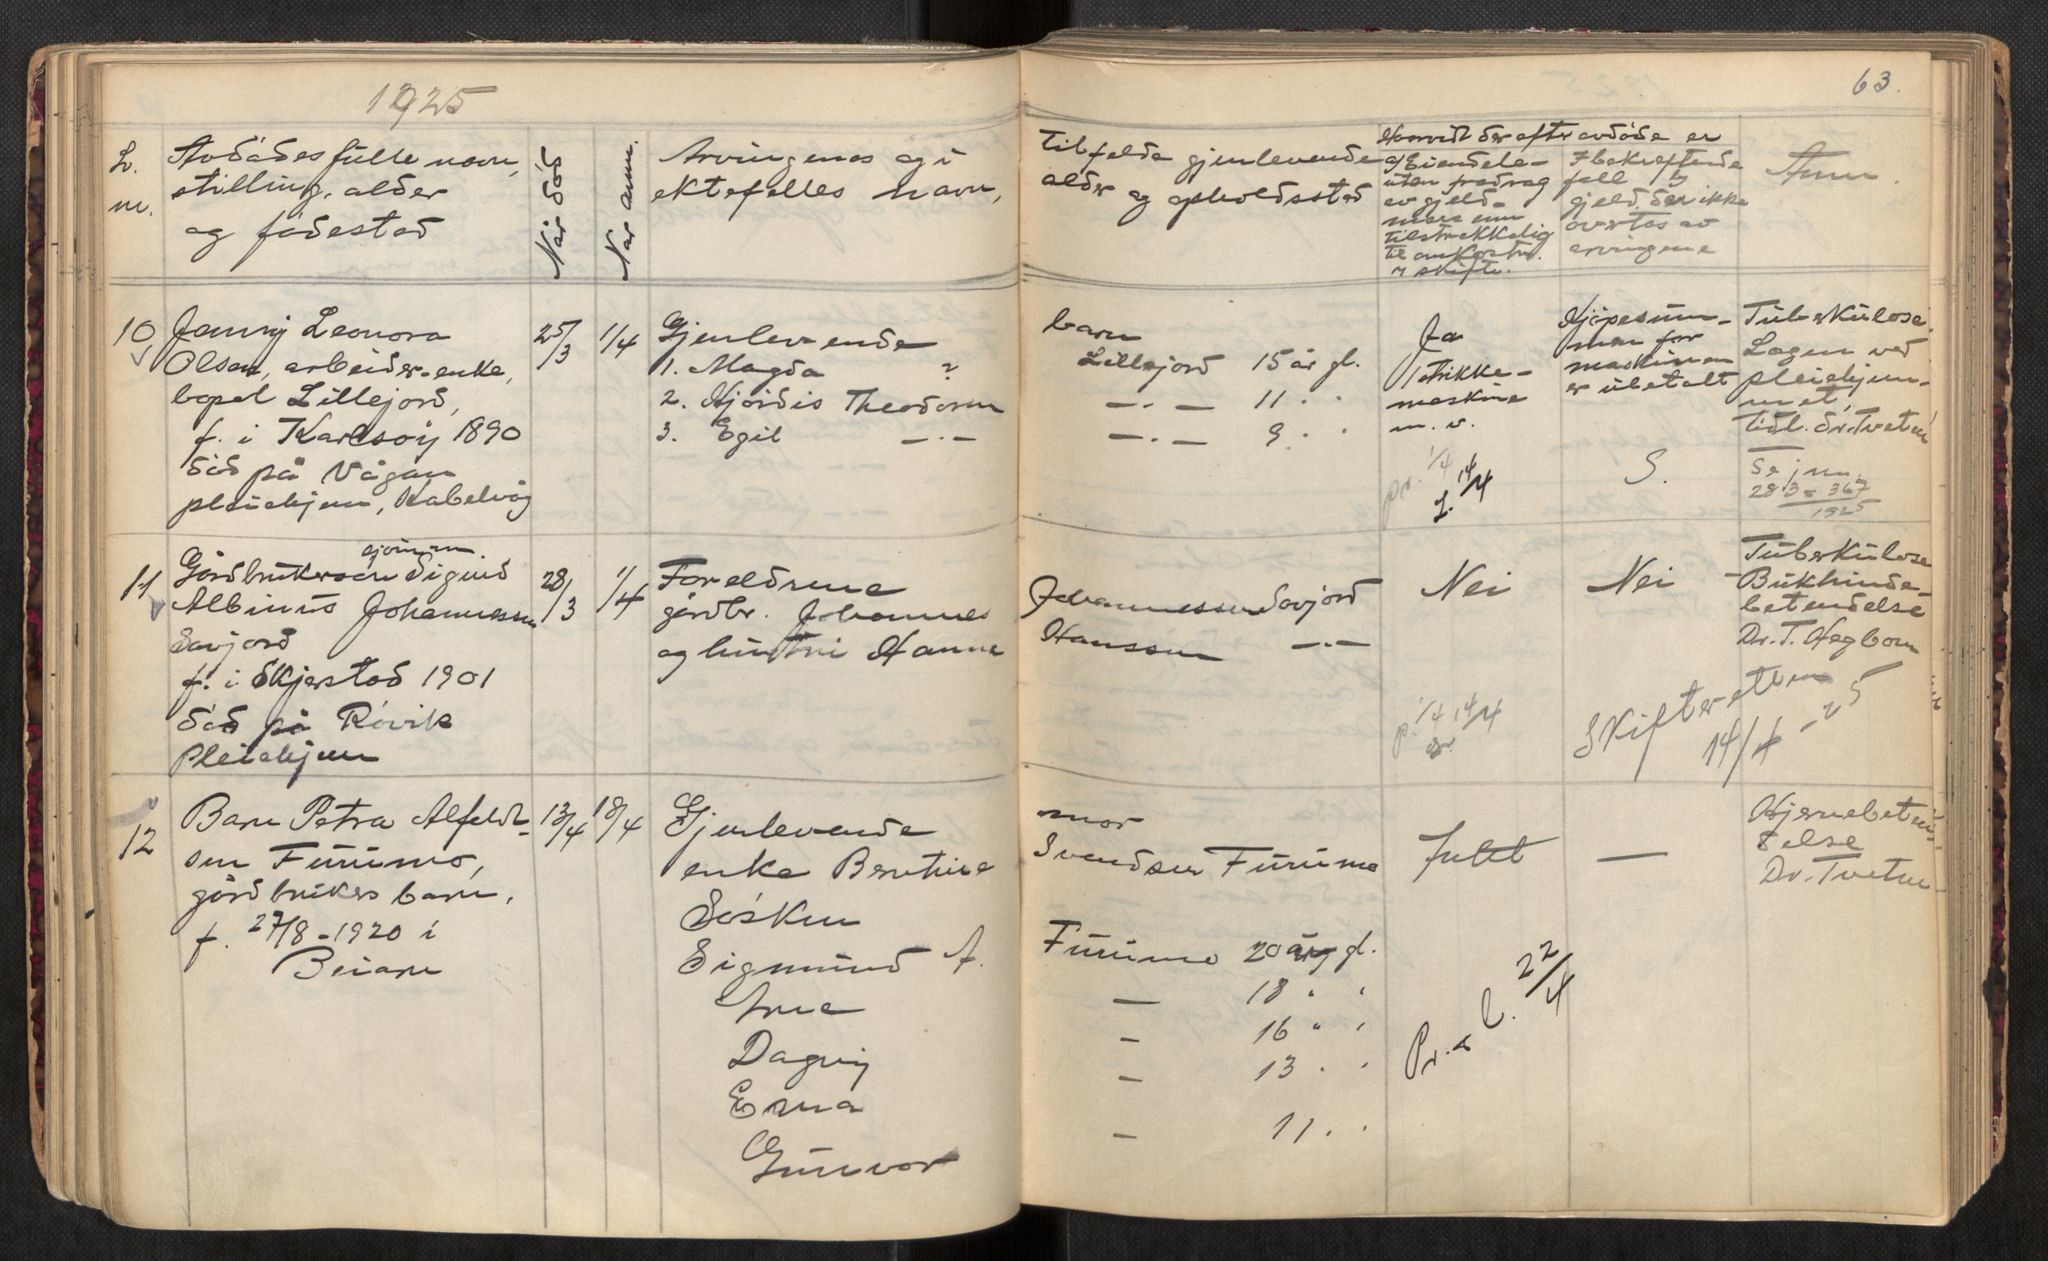 1925
63.
L.
nr.
Avdødes fulle navn,
stilling, alder
og fødested
Når død
Når anm.
Arvingenes og i
ektefelles navn,
tilfelde gjenlevende
alder og opholdssted
Hvorvidt der efter avdøde er
eiendele
uten fradrag
av gjeld
mere enn
tilstrekkelig
til omkostn.
v skifte.
I bekreftende
fall
gjeld, der ikke
overtas av
arvingene
Anm.
10
Jenny Leonora
Olsen, arbeider-enke,
bopel Lillejord,
f. i Karlsøy 1890
død på Vågan
pleiehjem, Kabelvåg
25/3
1/4
Gjenlevende
1. Magda ?
2. Hjørdis Theodorsen
3. Egil —·—
barn
Lillejord 15 år gl.
—·— 11 · ·
—·— 9 · ·
Ja
1 strikke-
maskine
m. v.
pr. 1/4 14/4
Kjøpesum-
men for
maskinen
er ubetalt
S.
Tuberkulose.
Lagen ved
pleiehjem-
met,
tidl. dr. Tveten
Se jnr.
283 - 367
1925
11
gjönnom.
Gårdbrukersøn Sigurd
Albinus Johannessen
Savjord
f. i Skjerstad 1901
død på Røvik
Pleiehjem
28/3
1/4
Foreldrene
gårdbr. Johannes
og hustru Hanna
Johannessen Savjord
Hanssen —·—
Nei
p. 1/4 14/4
Nei
Skifteretten
14/4 - 25
Tuberkulose
Bukhinde-
betendelse
Dr. T. Hegbom
12
Barn Petra Alfeldt-
sen Furumo,
gårdbrukers barn,
f. 27/8-1920 i
Beiarn
13/4
18/4
Gjenlevende
enke Berntine
Søsken
Sigmund A.
Arne
Dagny
Erna
Gunvor
mor
Svendsen Furumo
Furumo 20 år gl.
— 18 " "
— 16 " "
— 13 · ·
— 11 · ·
Intet
Pr. 22/4
—
Hjernebeten-
delse
Dr. Tveten